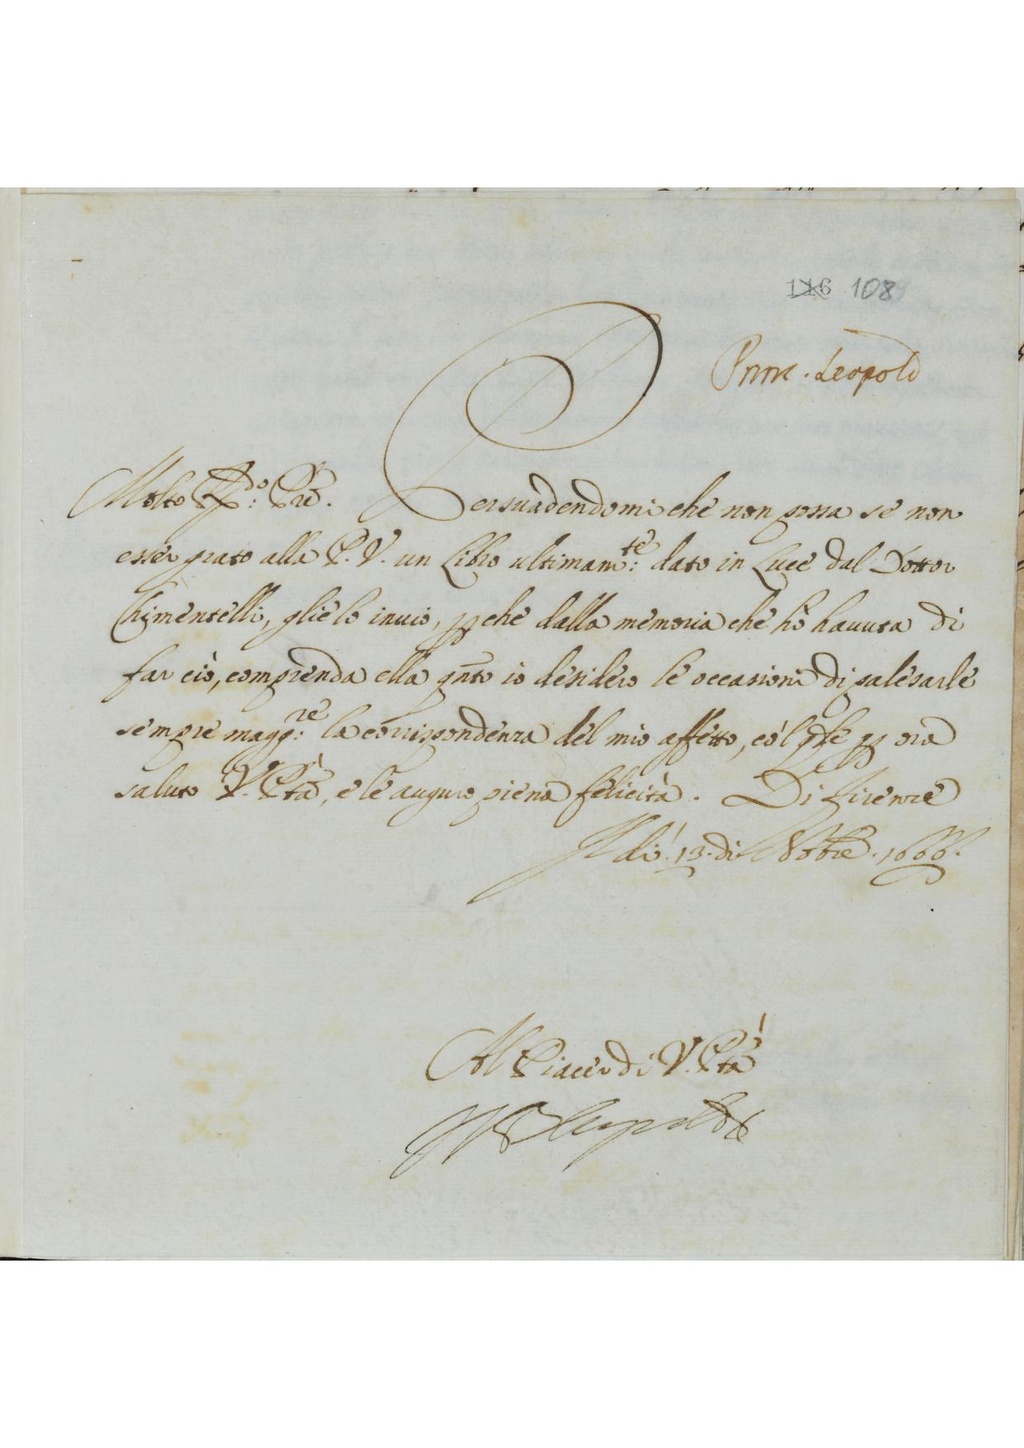 116 108
Princ. Leopold
Molto R.do Pre. Persuadendomi che non possa se non
esser grato alla P. V. un Libro ultimam.te dato in Luce dal Dottor
Chimentelli, glie lo inuio, pche dalla memoria che hò hauuta di
far ciò, comprenda ella qnto io desidero le occasioni di palesarle
sempre magg.re la corrispondenza del mio affetto, co'l qle p ora
saluto V. Ptà, e le auguro piena felicità. Di Firenze
li dì 13. di Sbre. 1666.
Al Piacer di V. Ptà
Leopoldo